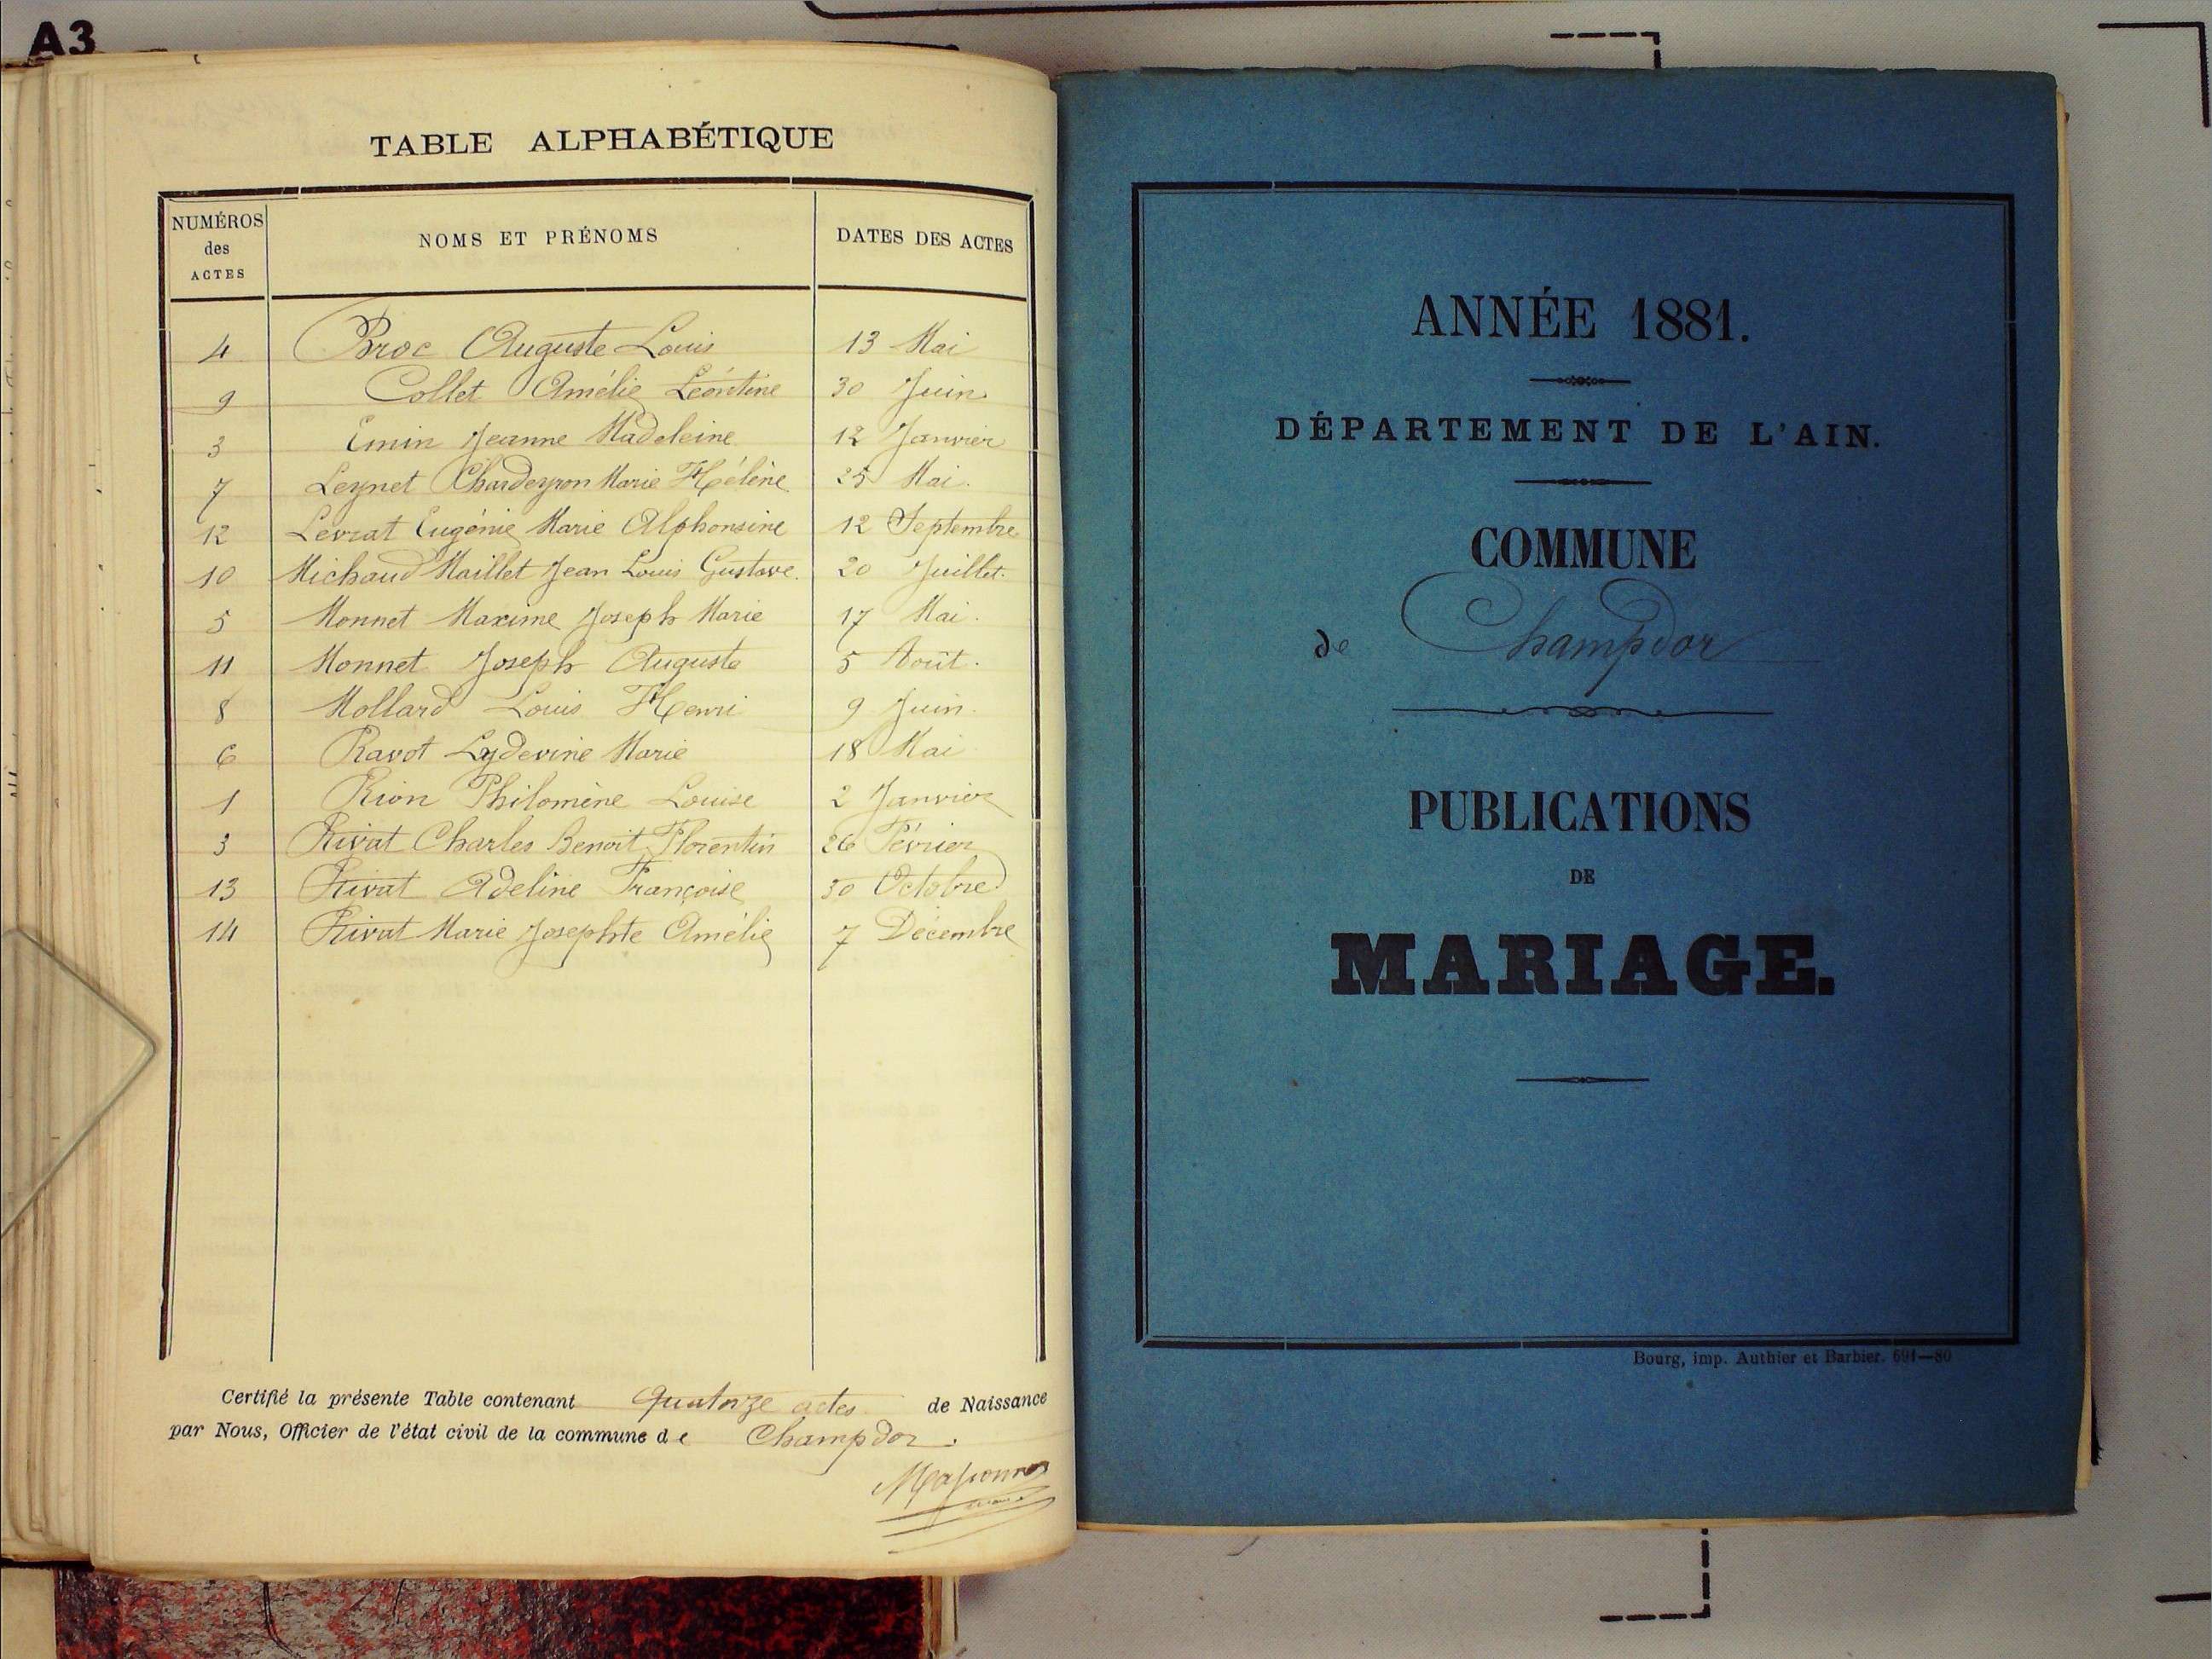 A3
TABLE ALPHABÉTIQUE
NUMÉROS des ACTES NOMS ET PRÉNOMS DATES DES ACTES
4 Broc Auguste Louis 13 Mai
9 Collet Amélie Léontine 30 Juin
3 Emin Jeanne Madeleine 12 Janvier
7 Leynet Chardeyron Marie Hélène 25 Mai.
12 Levrat Eugénie Marie Alphonsine 12 Septembre
10 Michaud Maillet Jean Louis Gustave. 20 Juillet.
5 Monnet Maxime Joseph Marie 17 Mai.
11 Monnet Joseph Auguste 5 Août.
8 Mollard Louis Henri 9 Juin.
6 Ravot Lydevine Marie 18 Mai
1 Rion Philomène Louise 2 Janvier
3 Rivat Charles Benoit Florentin 26 Février
13 Rivat Adeline Françoise 30 Octobre
14 Rivat Marie Josephte Amélie 7 Décembre
Certifié la présente Table contenant quatorze actes de Naissance
par Nous, Officier de l'état civil de la commune de Champdor.
ANNÉE 1881.
DÉPARTEMENT DE L'AIN.
COMMUNE
de Champdor
PUBLICATIONS
DE
MARIAGE.
Bourg, imp. Authier et Barbier. 691—80